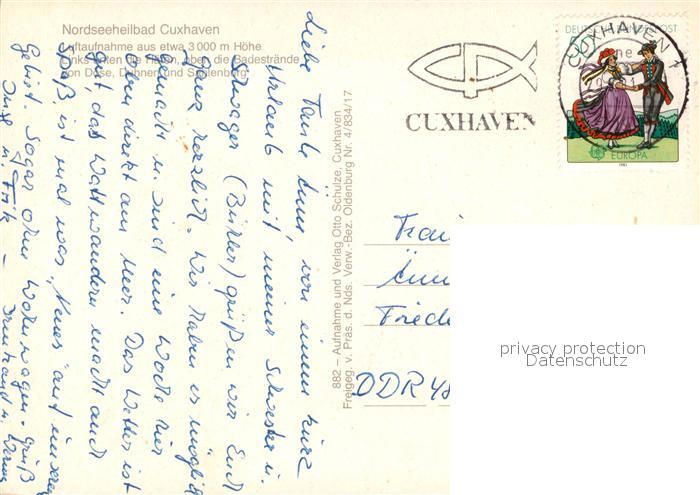 Nordseeheilbad Cuxhaven
Luftaufnahme aus etwa 3000 m Höhe
Links unten die Häfen, oben die Badestrände
von Döse, Duhnen und Sahlenburg
882 – Aufnahme und Verlag Otto Schulze, Cuxhaven
Freigeg. v. Präs. d. Nds. Verw.-Bez. Oldenburg Nr. 4/834/17
CUXHAVEN
DEUTSCHE BUNDESPOST
CUXHAVEN 1
EUROPA
1981
Liebe Tante Änni, von einem kurz
Urlaub mit meiner Schwester u.
Schwager (Bühler) grüßen wir Euch
ganz herzlich. Wir haben es möglich
gemacht u. sind eine Woche hier
oben direkt am Meer. Das Wetter ist
gut, das Wattwandern macht auch
Spaß, ist mal was "Neues" auf unserem
Gebiet. Sogar ohne Wohnwagen. Grüß
Inge u. Fritz –
Frau
Änni
Friede
DDR 48
privacy protection
Datenschutz